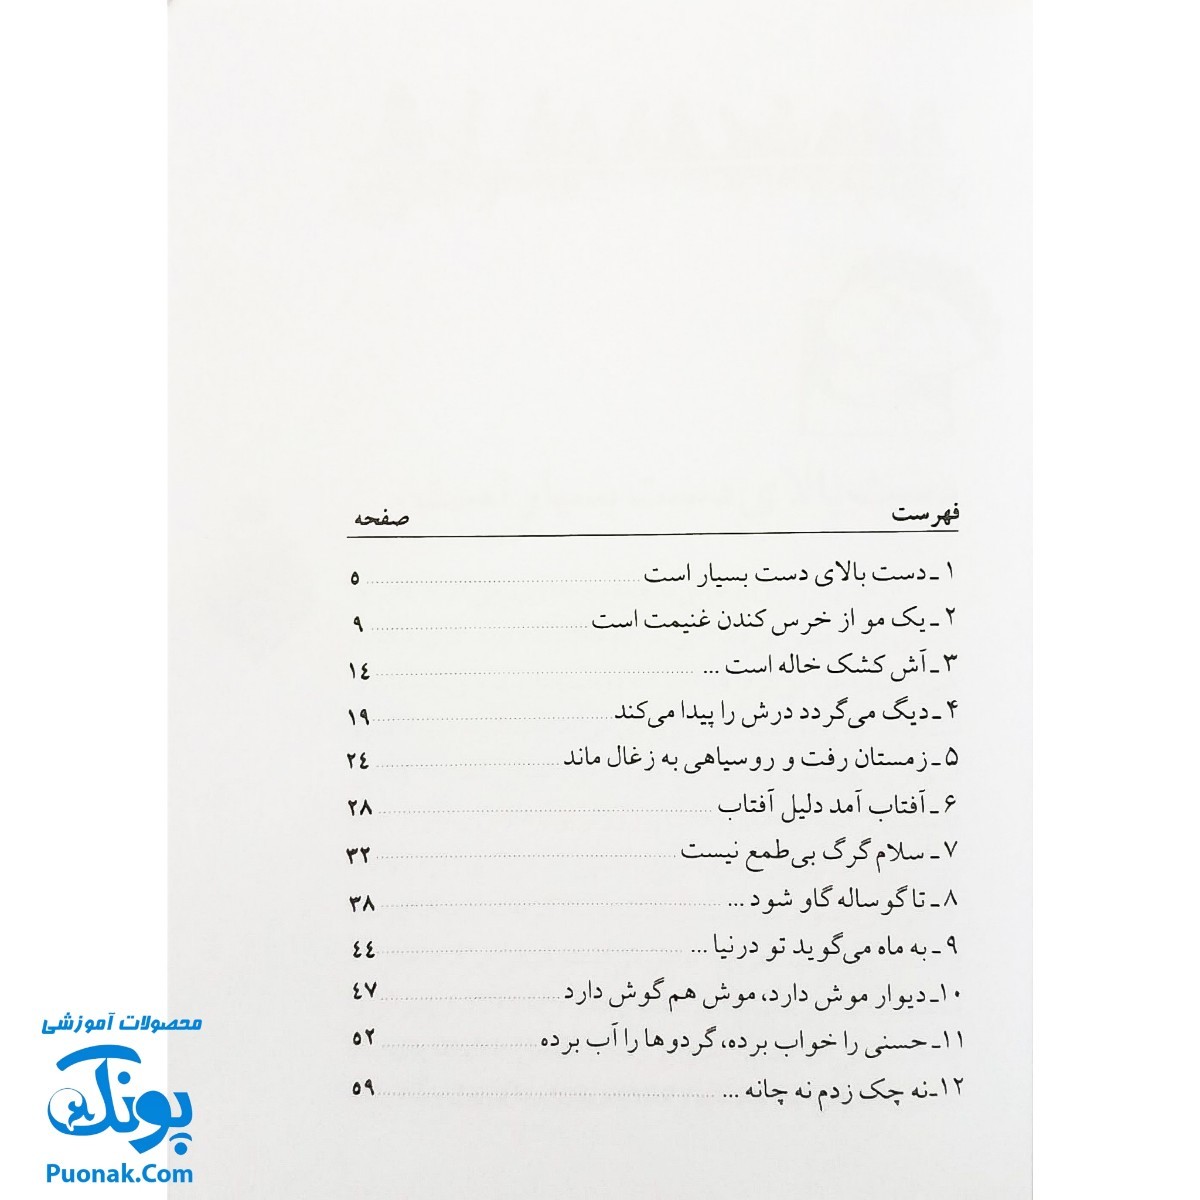 فهرست صفحه
۱ـ دست بالای دست بسیار است ۵
۲ـ یک مو از خرس کندن غنیمت است ۹
۳ـ آش کشک خاله است ... ۱۴
۴ـ دیگ می‌گردد درش را پیدا می‌کند ۱۹
۵ـ زمستان رفت و روسیاهی به زغال ماند ۲۴
۶ـ آفتاب آمد دلیل آفتاب ۲۸
۷ـ سلام گرگ بی‌طمع نیست ۳۲
۸ـ تا گوساله گاو شود ... ۳۸
۹ـ به ماه می‌گوید تو درنیا ... ۴۴
۱۰ـ دیوار موش دارد، موش هم گوش دارد ۴۷
۱۱ـ حسنی را خواب برده، گردوها را آب برده ۵۲
۱۲ـ نه چک زدم نه چانه ... ۵۹
محصولات آموزشی
پونک
Puonak.Com